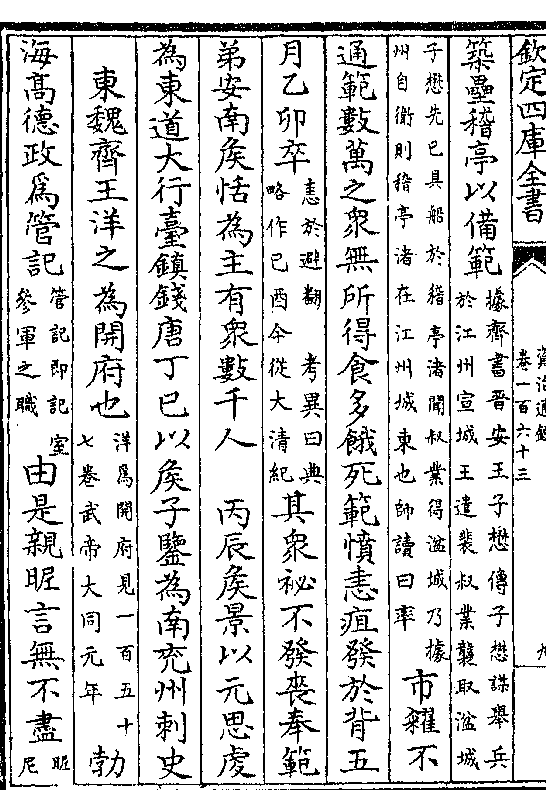 欽定四庫全書
資治通鑑
卷一百六十三
九
築壘稽亭以備範據齊書晉安王子懋傳子懋謀舉兵
於江州宣城王遣裴叔業襲取湓城
子懋先已具船於稽亭渚聞叔業得湓城乃據
州自衛則稽亭渚在江州城東也師讀曰率市糴不
通範數萬之衆無所得食多餓死範憤恚疽發於背五
月乙卯卒恚於避翻 考異曰典
略作己酉今從大清紀其衆祕不發喪奉範
弟安南矦恬為主有衆數千人 丙辰矦景以元思虔
為東道大行臺鎮錢唐丁巳以矦子鑒為南兖州刺史
東魏齊王洋之為開府也洋為開府見一百五十
七卷武帝大同元年勃
海高德政爲管記管記即記室
參軍之職由是親昵言無不盡昵
尼